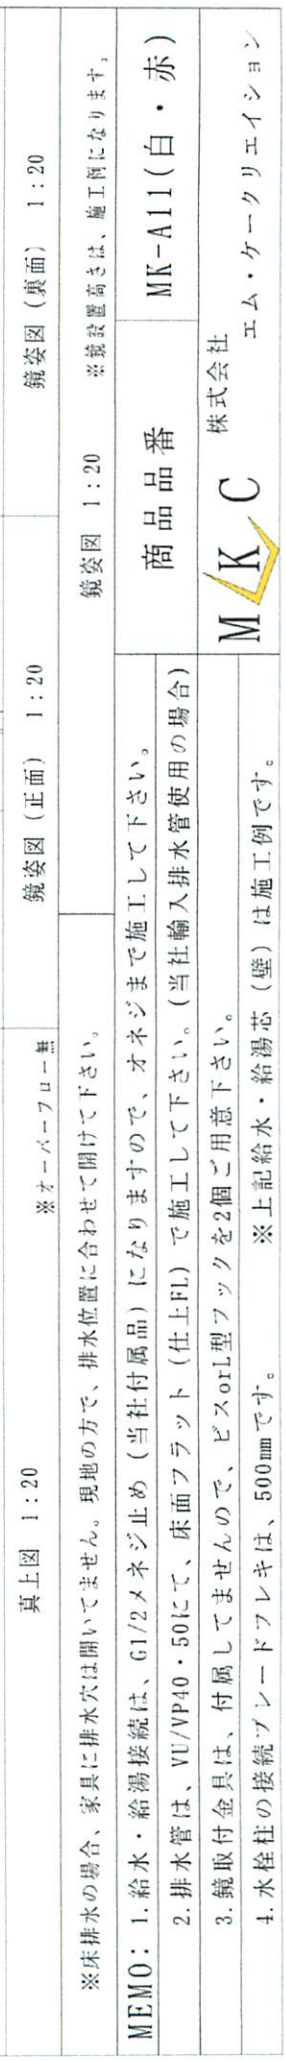 真上図 1:20
※オーバーフロー無
鏡姿図 (正面) 1:20
鏡姿図 (裏面) 1:20
※床排水の場合、家具に排水穴は開いてません。現地の方で、排水位置に合わせて開けて下さい。
鏡姿図 1:20
※鏡設置高さは、施工例になります。
MEMO: 1.給水・給湯接続は、G1/2メネジ止め (当社付属品) になりますので、オネジまで施工して下さい。
2.排水管は、VU/VP40・50にて、床面フラット (仕上FL) で施工して下さい。(当社輸入排水管使用の場合)
3.鏡取付金具は、付属してませんので、ビスorL型フックを2個ご用意下さい。
4.水栓柱の接続ブレードフレキは、500㎜です。 ※上記給水・給湯芯 (壁) は施工例です。
商品品番
MK-A11(白・赤)
MKC
株式会社
エム・ケークリエイション